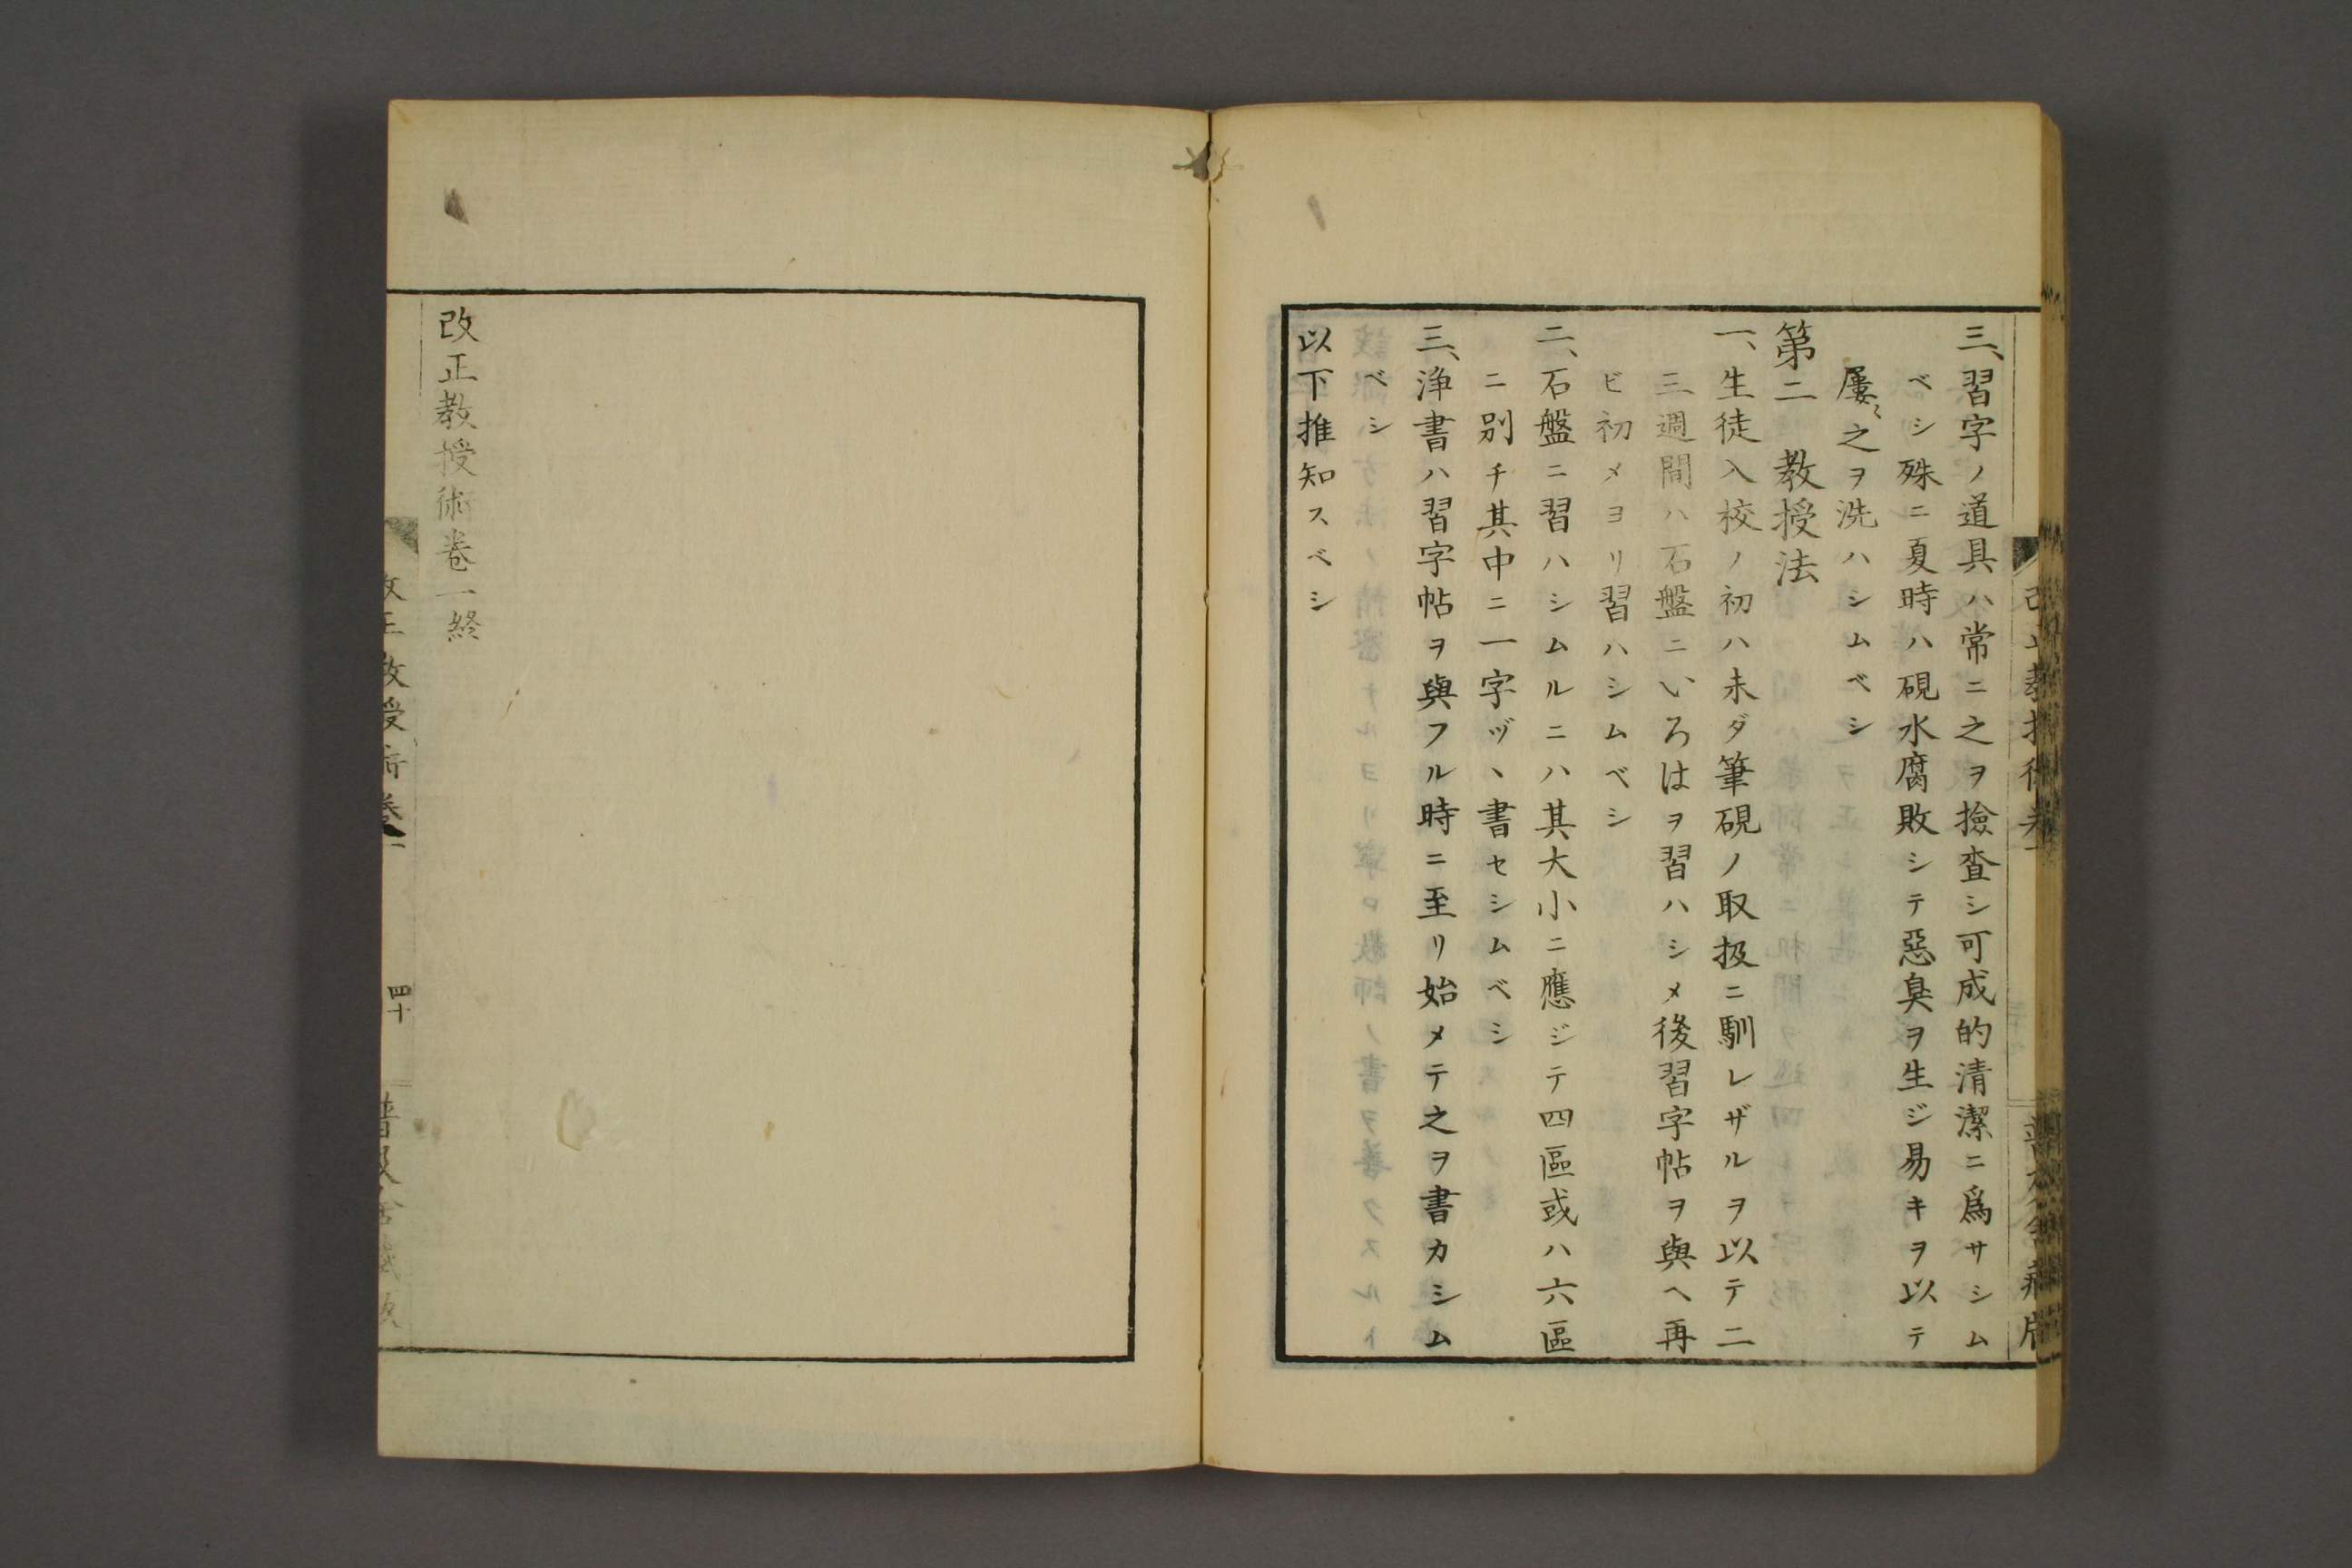 三、習字ノ道具ハ常ニ之ヲ撿査シ可成的清潔ニ爲サシム
ベシ殊ニ夏時ハ硯水腐敗シテ惡臭ヲ生ジ易キヲ以テ
屢〻之ヲ洗ハシムベシ
第二 教授法
一、生徒入校ノ初ハ未ダ筆硯ノ取扱ニ馴レザルヲ以テ二
三週間ハ石盤ニいろはヲ習ハシメ後習字帖ヲ與ヘ再
ビ初メヨリ習ハシムベシ
二、石盤ニ習ハシムルニハ其大小ニ應ジテ四區或ハ六區
ニ別チ其中ニ一字ヅヽ書セシムベシ
三、淨書ハ習字帖ヲ與フル時ニ至リ始メテ之ヲ書カシム
ベシ
以下推知スベシ
改正教授術卷一終
改正教授術卷一 四十